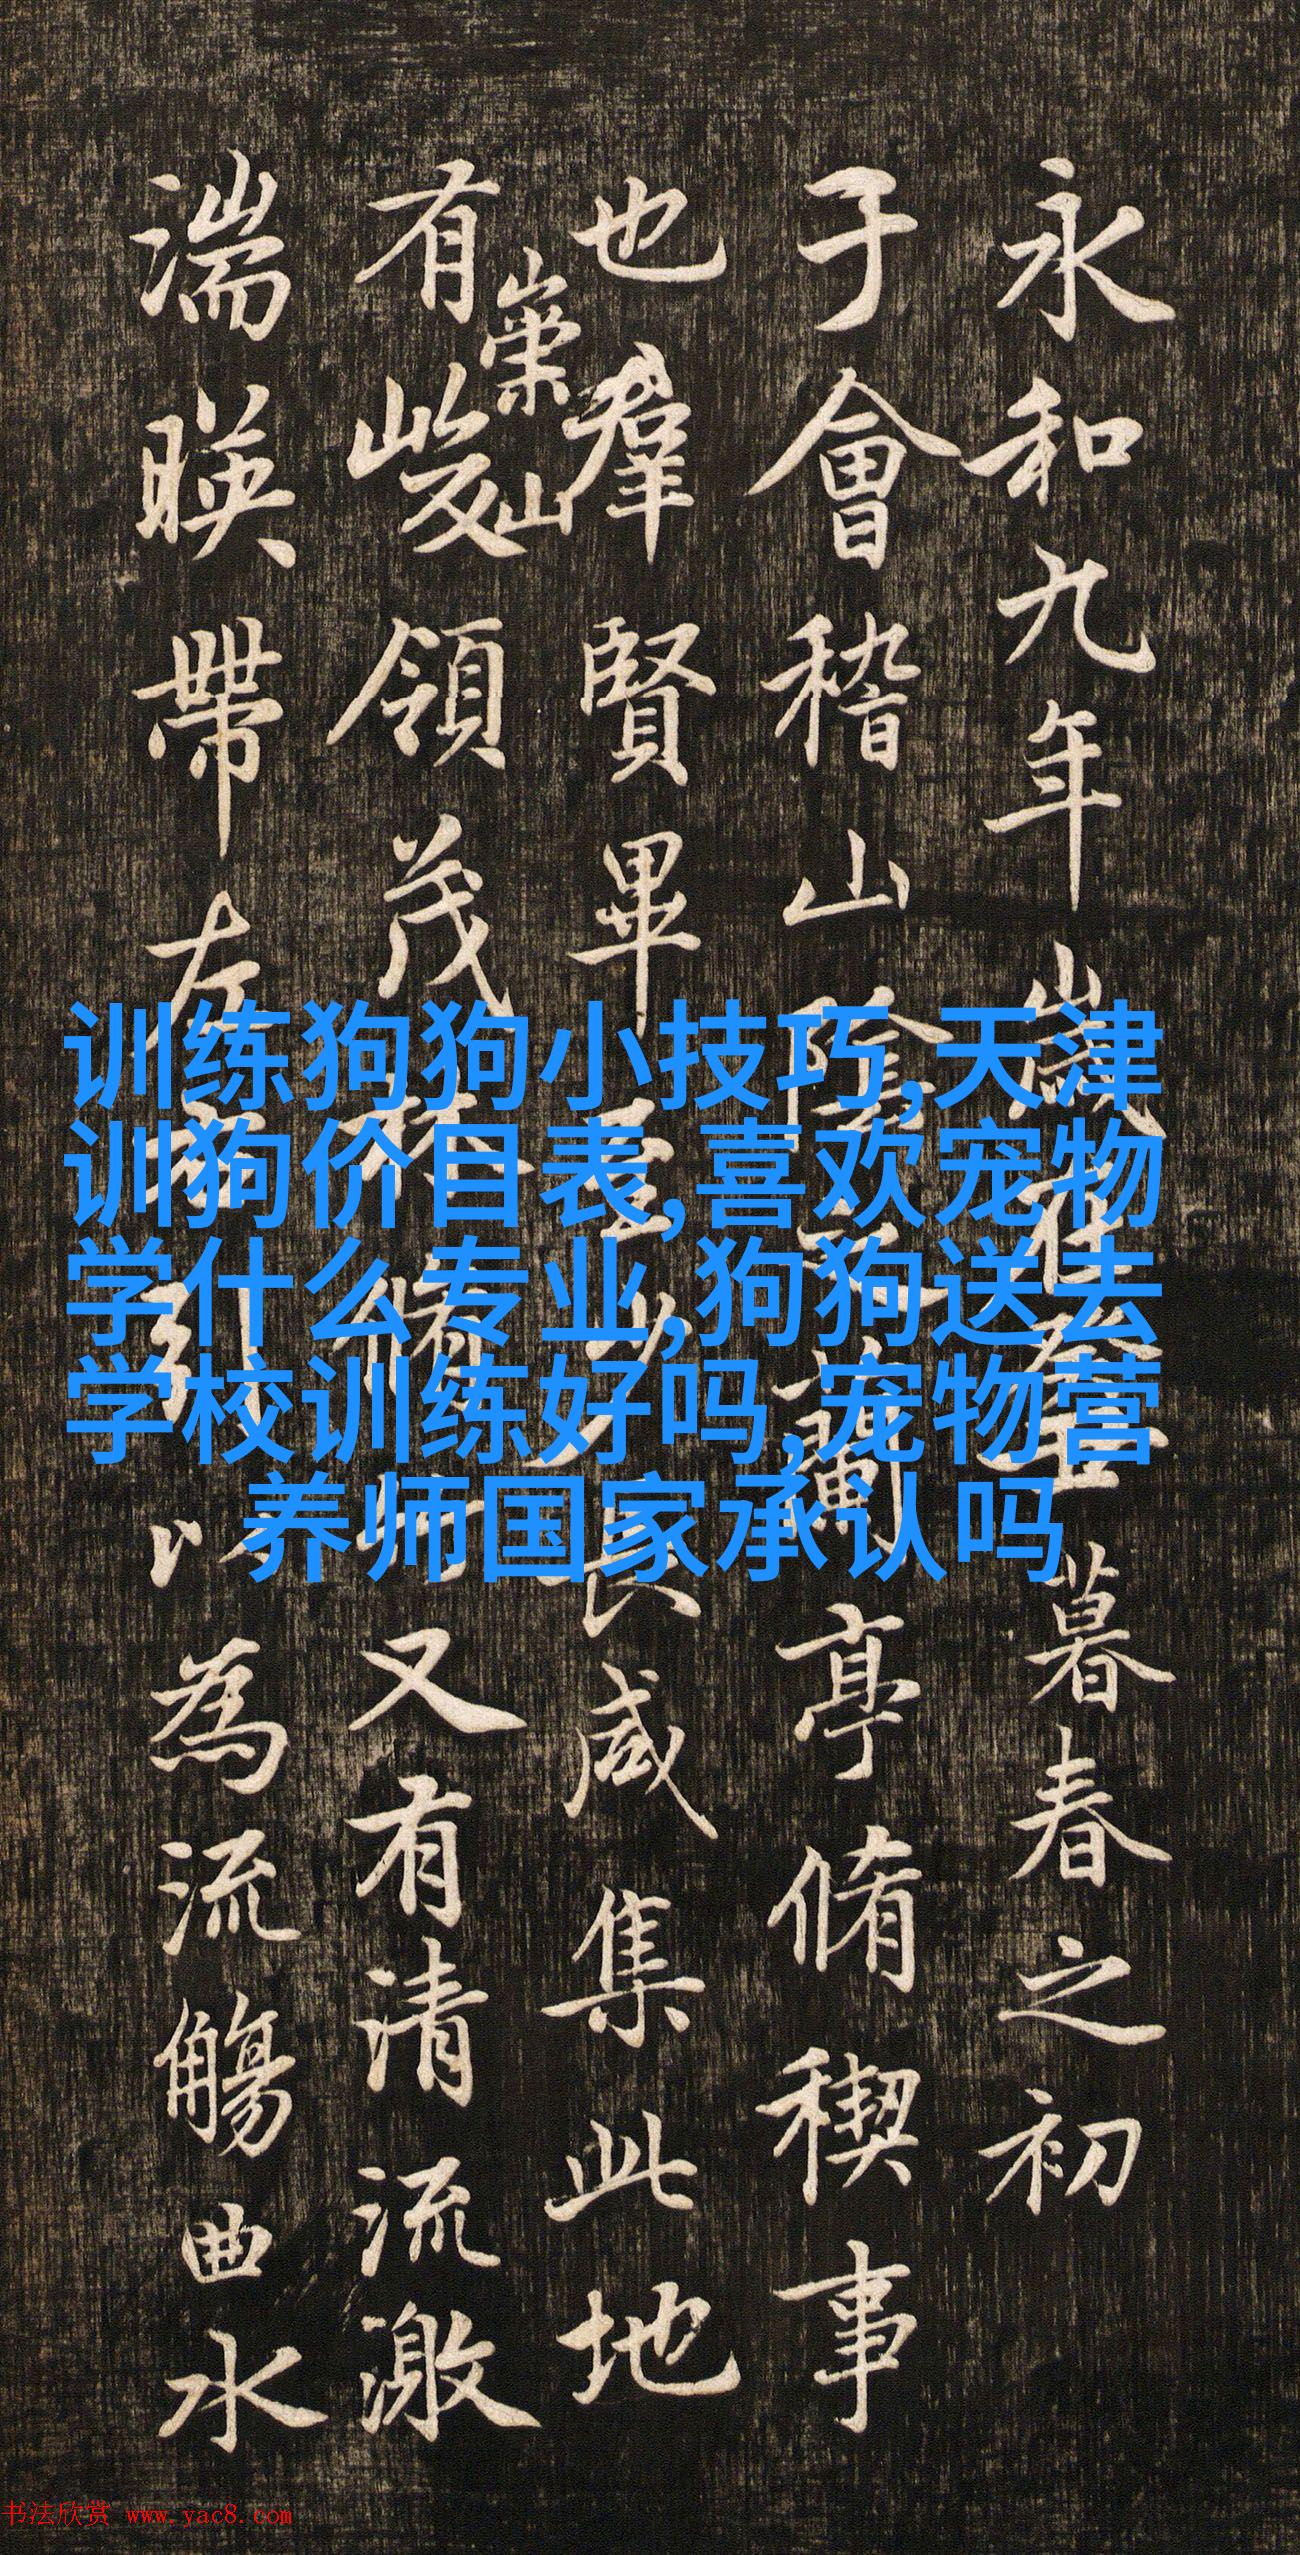 永和九年歲在癸丑暮春之初
于會稽山陰之蘭亭脩稧事
也羣賢畢至少長咸集此地
有崇山峻領茂林脩竹又有清流激
湍暎帶左右引以為流觴曲水
训练狗狗小技巧,天津
训狗价目表,喜欢宠物
学什么专业,狗狗送去
学校训练好吗,宠物营
养师国家承认吗
书法欣赏 www.yac8.com